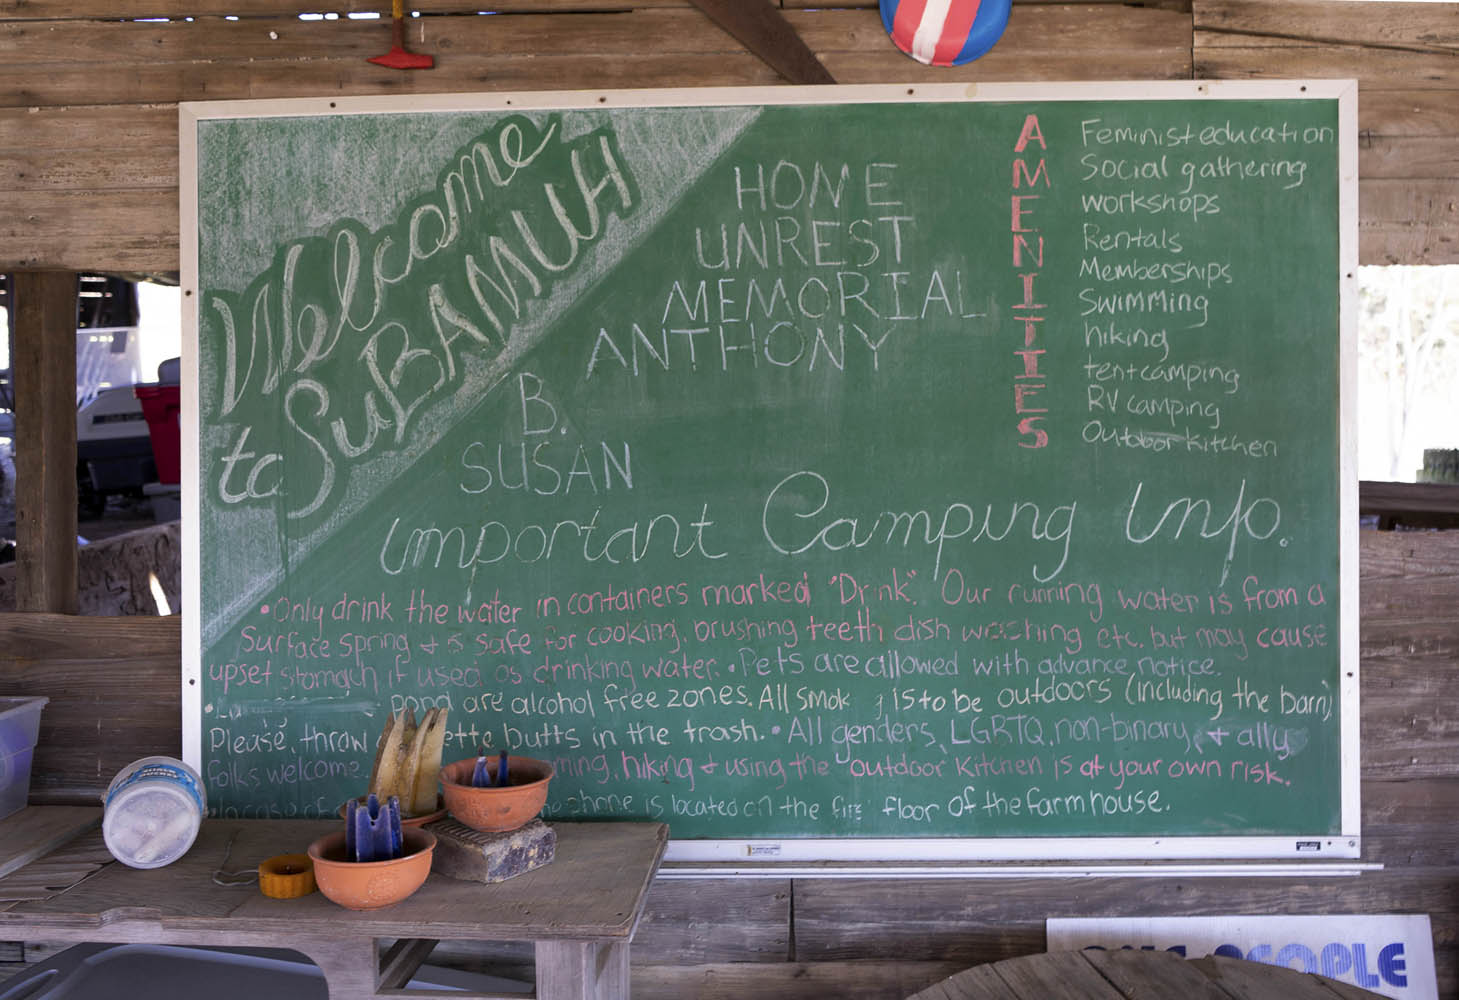 Welcome
to SuBAMUH
HOME
UNREST
MEMORIAL
ANTHONY
B.
SUSAN
AMENITIES
Feminist education
Social gathering
workshops
Rentals
Memberships
Swimming
hiking
tent camping
RV camping
Outdoor Kitchen
Important Camping Info.
• Only drink the water in containers marked "Drink". Our running water is from a
Surface spring + is safe for cooking, brushing teeth dish washing etc. but may cause
upset stomach if used as drinking water. • Pets are allowed with advance notice.
• pond are alcohol free zones. All smok g is to be outdoors (including the barn).
Please, throw ette butts in the trash. • All genders, LGBTQ, non-binary, + ally
folks welcome. ming, hiking + using the outdoor Kitchen is at your own risk.
In case of phone is located on the first floor of the farmhouse.
PEOPLE